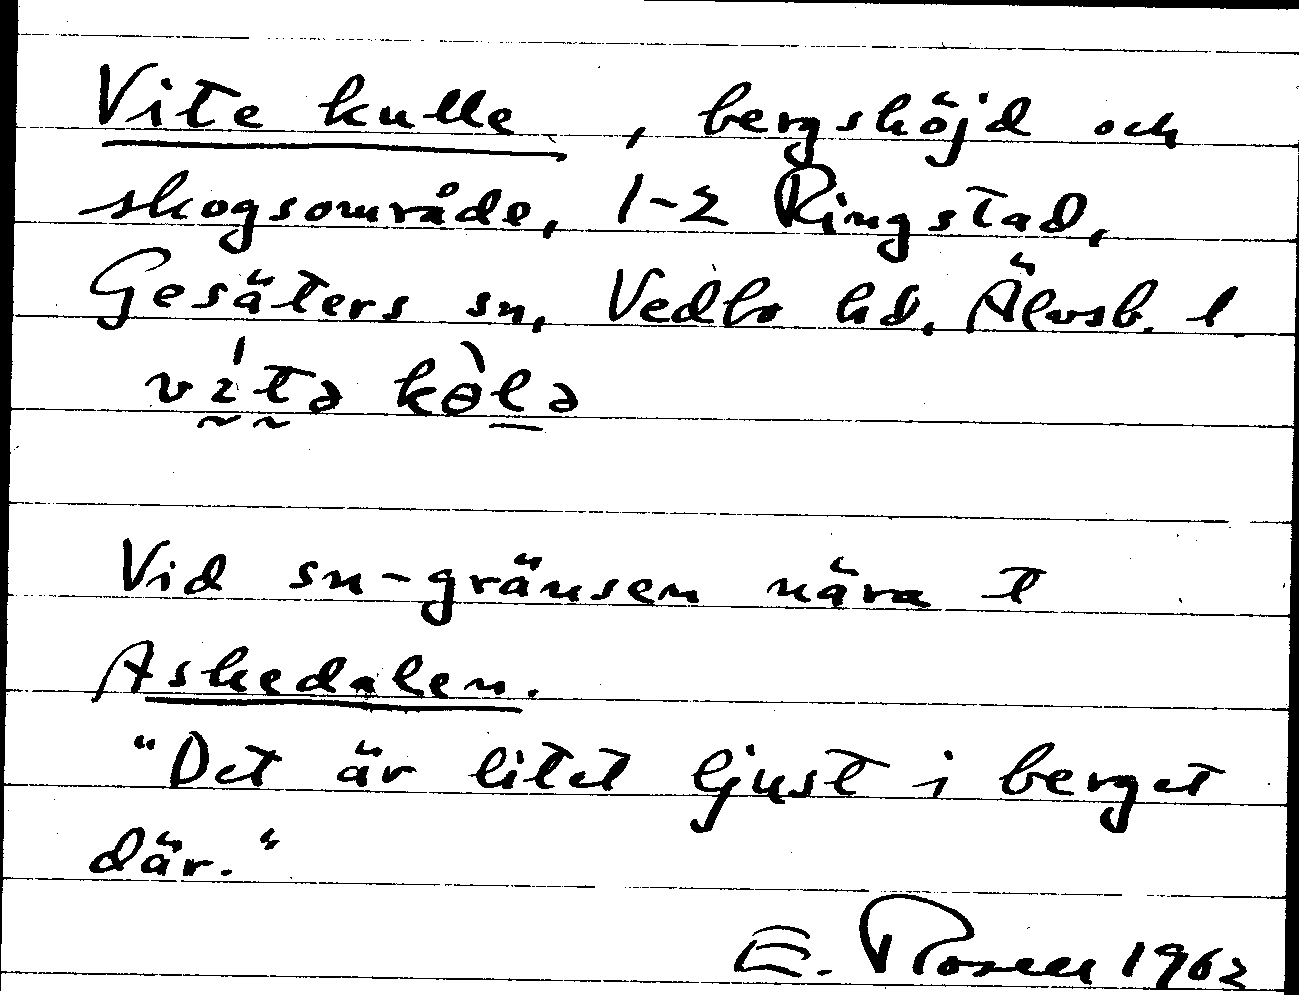 Vite kulle, bergshöjd och
skogsområde, 1-2 Ringstad,
Gesäters sn, Vedbo hd, Älvsb. l
vı́tə kɵ̀lə
Vid sn-gränsen nära t
Askedalen.
"Det är litet ljust i berget
där."
E. Rosen 1962